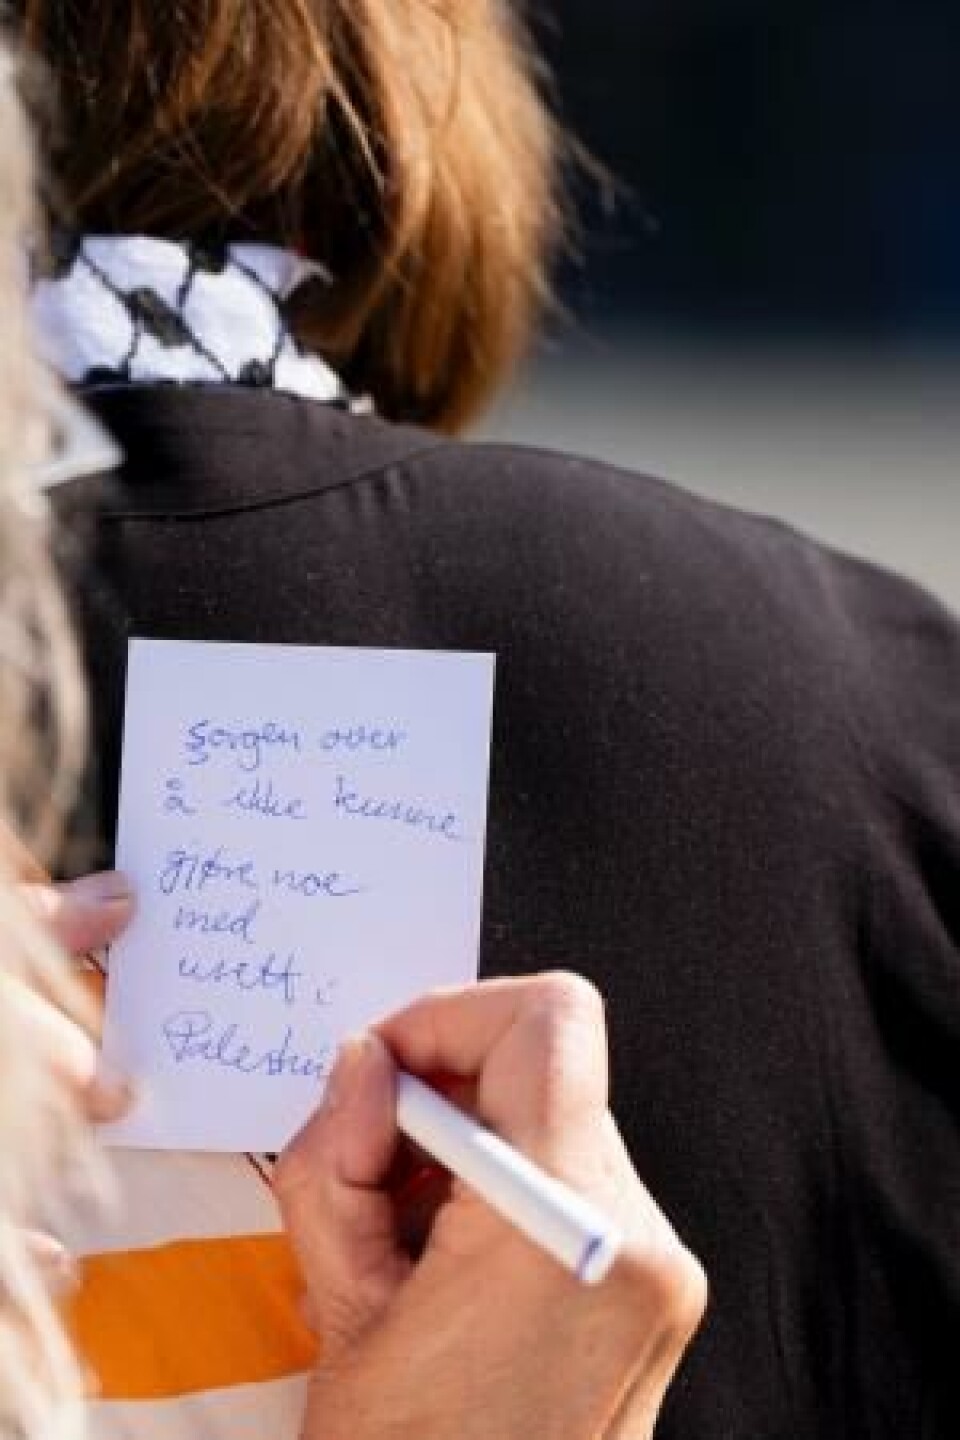 Sorgen over
å ikke kunne
gjøre noe
med
urett i
Palestin